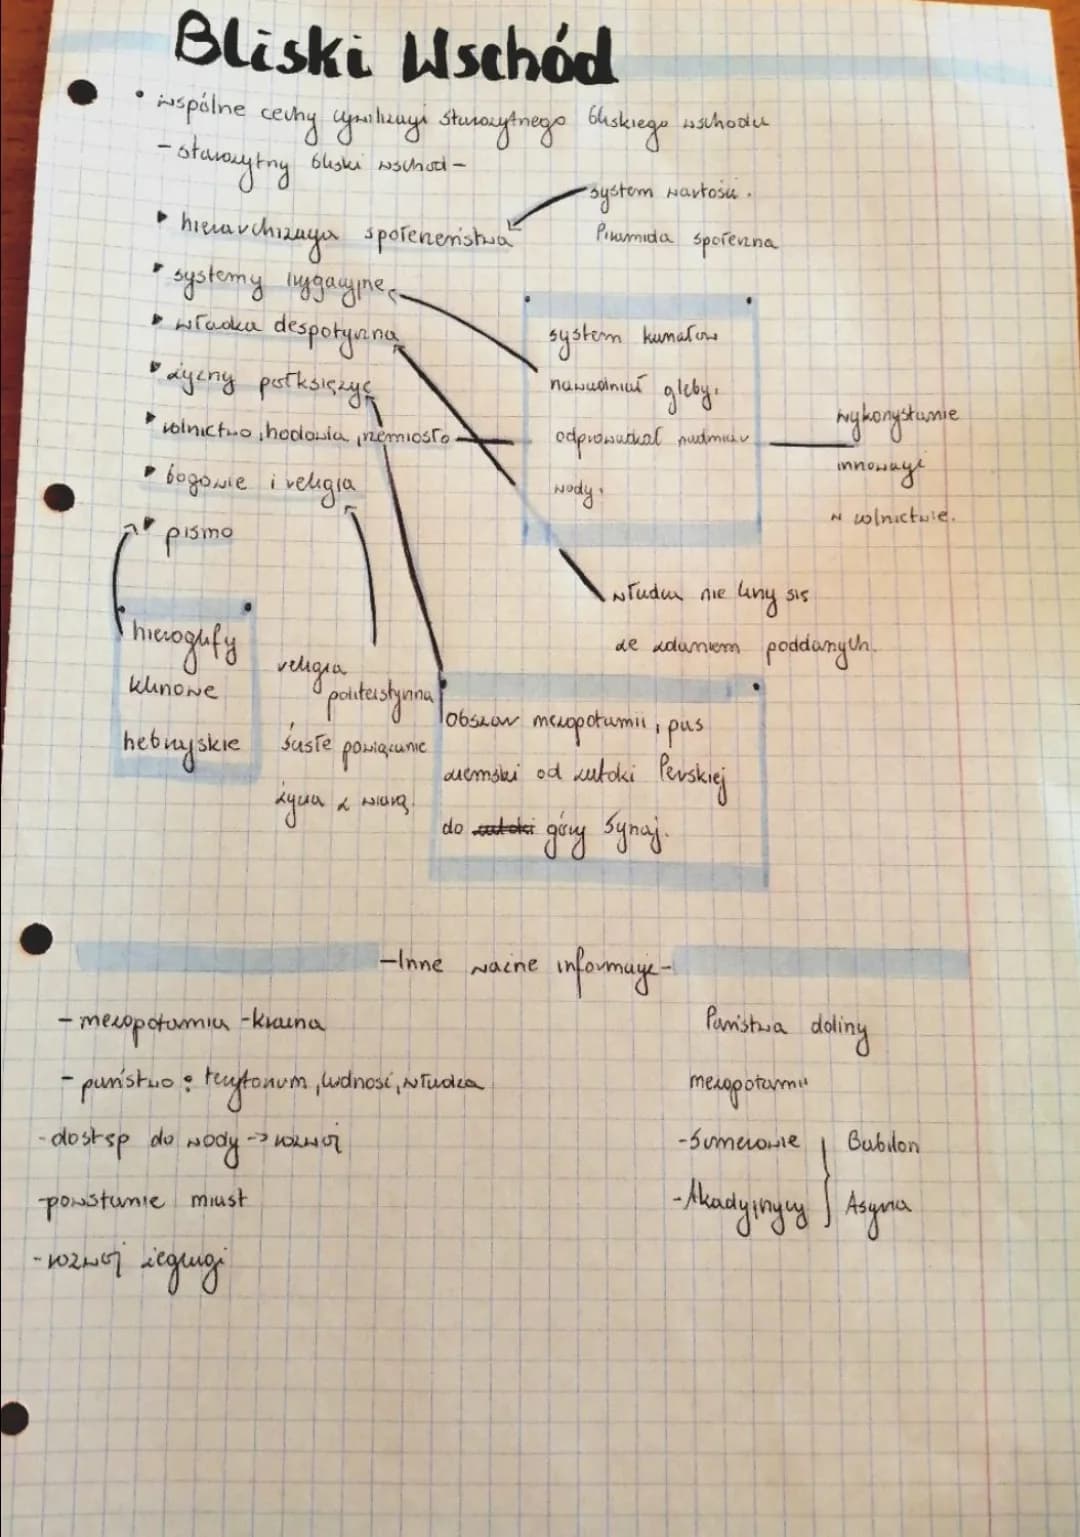 Bliski Wschód
• wspólne cechy cywilizacji starożytnego bliskiego wschodu
- starożytny bliski wschód -
system wartości.
▸ hierarchizacja społeczeństwa
Piramida społeczna
▸ systemy irygacyjne
▸ władza despotyczna
system kanałów
▸ żyzny półksiężyc
nawadniał gleby,
▸ rolnictwo, hodowla, rzemiosło
odprowadzał nadmiar
wody,
wykorzystanie
innowacji
w rolnictwie.
▸ bogowie i religia
▸ pismo
władca nie liczy się
ze zdaniem poddanych.
hieroglify
klinowe
hebrajskie
religia
politeistyczna
ścisłe powiązanie
życia z wiarą.
Obszar mezopotamii, pas
ziemski od zatoki Perskiej
do zatoki góry Synaj.
- Inne ważne informacje -
- mezopotamia - kraina
- państwo: terytorium, ludność, władza
- dostęp do wody -> rozwój
- powstanie miast
- rozwój żeglugi
Państwa doliny
mezopotamii
- Sumerowie } Babilon
- Akadyjczycy } Asyria